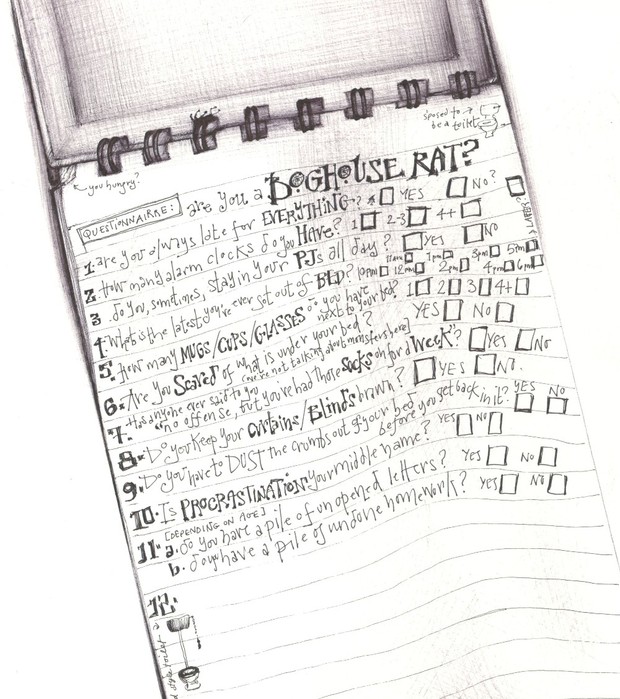 sposed to → be a toilet
← you hungry?
QUESTIONNAIRRE: are you a DOGHOUSE RAT?
1. are you always late for EVERYTHING? YES NO?
2. How many alarm clocks do you HAVE? 1 2-3 4+
3. do you, sometimes, stay in your PJs all day? YES NO
4. What is the latest you've ever got out of BED? 10pm 11am 12pm 1pm 2pm 3pm 4pm 5pm 6pm LATER?
5. How many MUGS/CUPS/GLASSES do you have next to your bed? 1 2 3 4+
6. Are you Scared of what is under your bed? YES NO
(we're not talking about monsters here)
7. Has anyone ever said to you "no offense, but you've had those socks on for a week"? Yes No
8. Do you keep your curtains/Blinds drawn? YES NO.
9. Do you have to DUST the crumbs out of your bed before you get back in it? YES NO
10. Is PROCRASTINATION your middle name? YES NO
[DEPENDING ON AGE]
11. a. do you have a pile of unopened letters? YES NO
b. do you have a pile of undone homework? yes NO
12.
style toilet →